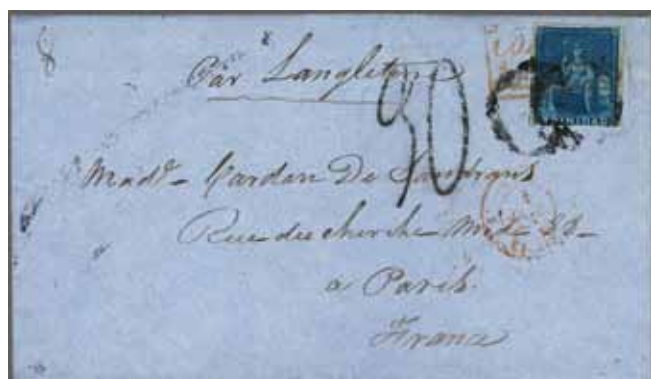 8
Par Langleterre
30
Mad. Cardon De Sandrans
Rue du cherche Midi
a Paris
France